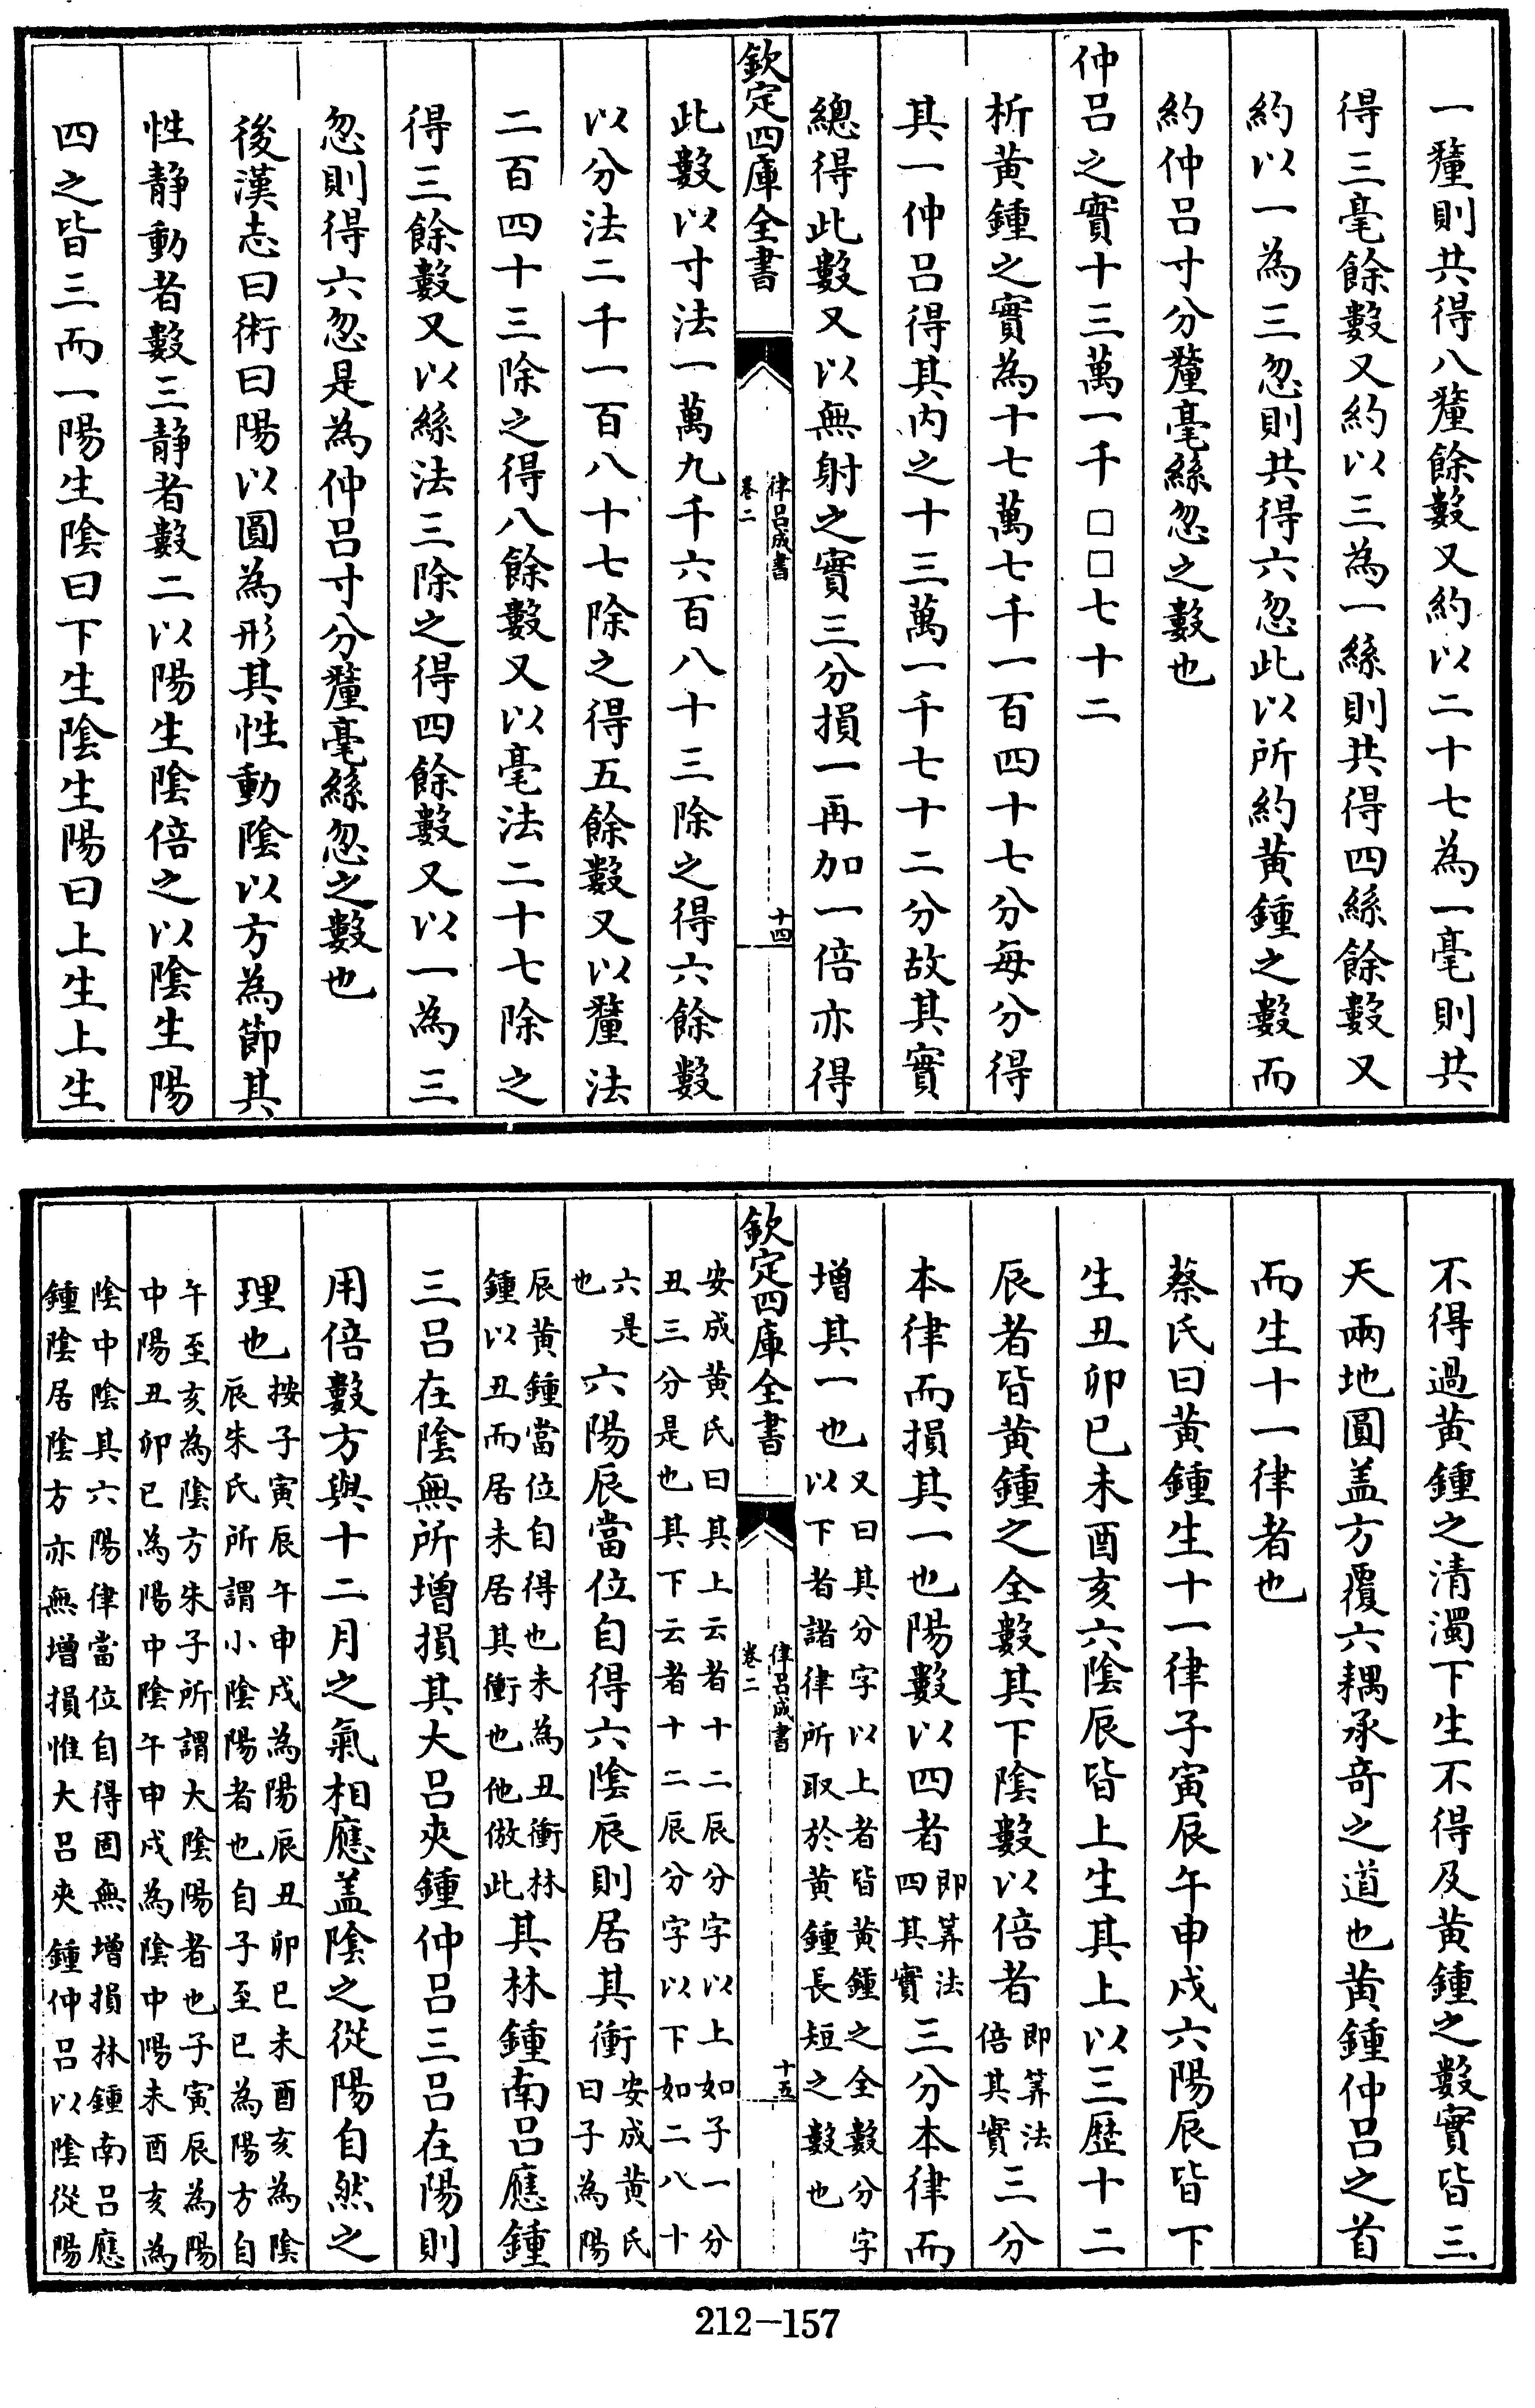 一釐則共得八釐餘數又約以二十七為一毫則共
得三毫餘數又約以三為一絲則共得四絲餘數又
約以一為三忽則共得六忽此以所約黃鍾之數而
約仲呂寸分釐毫絲忽之數也
仲呂之實十三萬一千□□七十二
析黃鍾之實為十七萬七千一百四十七分每分得
其一仲呂得其内之十三萬一千七十二分故其實
總得此數又以無射之實三分損一再加一倍亦得
欽定四庫全書
律呂成書
卷二
十四
此數以寸法一萬九千六百八十三除之得六餘數
以分法二千一百八十七除之得五餘數又以釐法
二百四十三除之得八餘數又以毫法二十七除之
得三餘數又以絲法三除之得四餘數又以一為三
忽則得六忽是為仲呂寸分釐毫絲忽之數也
後漢志曰術曰陽以圓為形其性動陰以方為節其
性靜動者數三靜者數二以陽生陰倍之以陰生陽
四之皆三而一陽生陰曰下生陰生陽曰上生上生
不得過黃鍾之清濁下生不得及黃鍾之數實皆三
天兩地圓盖方覆六耦承竒之道也黃鍾仲呂之首
而生十一律者也
蔡氏曰黃鍾生十一律子寅辰午申戌六陽辰皆下
生丑卯巳未酉亥六陰辰皆上生其上以三歴十二
辰者皆黃鍾之全數其下陰數以倍者即筭法倍其實三分
本律而損其一也陽數以四者即筭法四其實三分本律而
增其一也又曰其分字以上者皆黃鍾之全數分字以下者諸律所取於黃鍾長短之數也
欽定四庫全書
律呂成書
卷二
十五
安成黃氏曰其上云者十二辰分字以上如子一分
丑三分是也其下云者十二辰分字以下如二八十
六是也六陽辰當位自得六陰辰則居其衝安成黃氏曰子為陽
辰黃鍾當位自得也未為丑衝林鍾以丑而居未居其衝也他倣此其林鍾南呂應鍾
三呂在陰無所增損其大呂夾鍾仲呂三呂在陽則
用倍數方與十二月之氣相應盖陰之從陽自然之
理也按子寅辰午申戌為陽辰丑卯巳未酉亥為陰辰朱氏所謂小陰陽者也自子至巳為陽方自
午至亥為陰方朱子所謂大陰陽者也子寅辰為陽中陽丑卯巳為陽中陰午申戌為陰中陽未酉亥為
陰中陰其六陽律當位自得固無增損林鍾南呂應鍾陰居陰方亦無增損惟大呂夾鍾仲呂以陰從陽
212-157